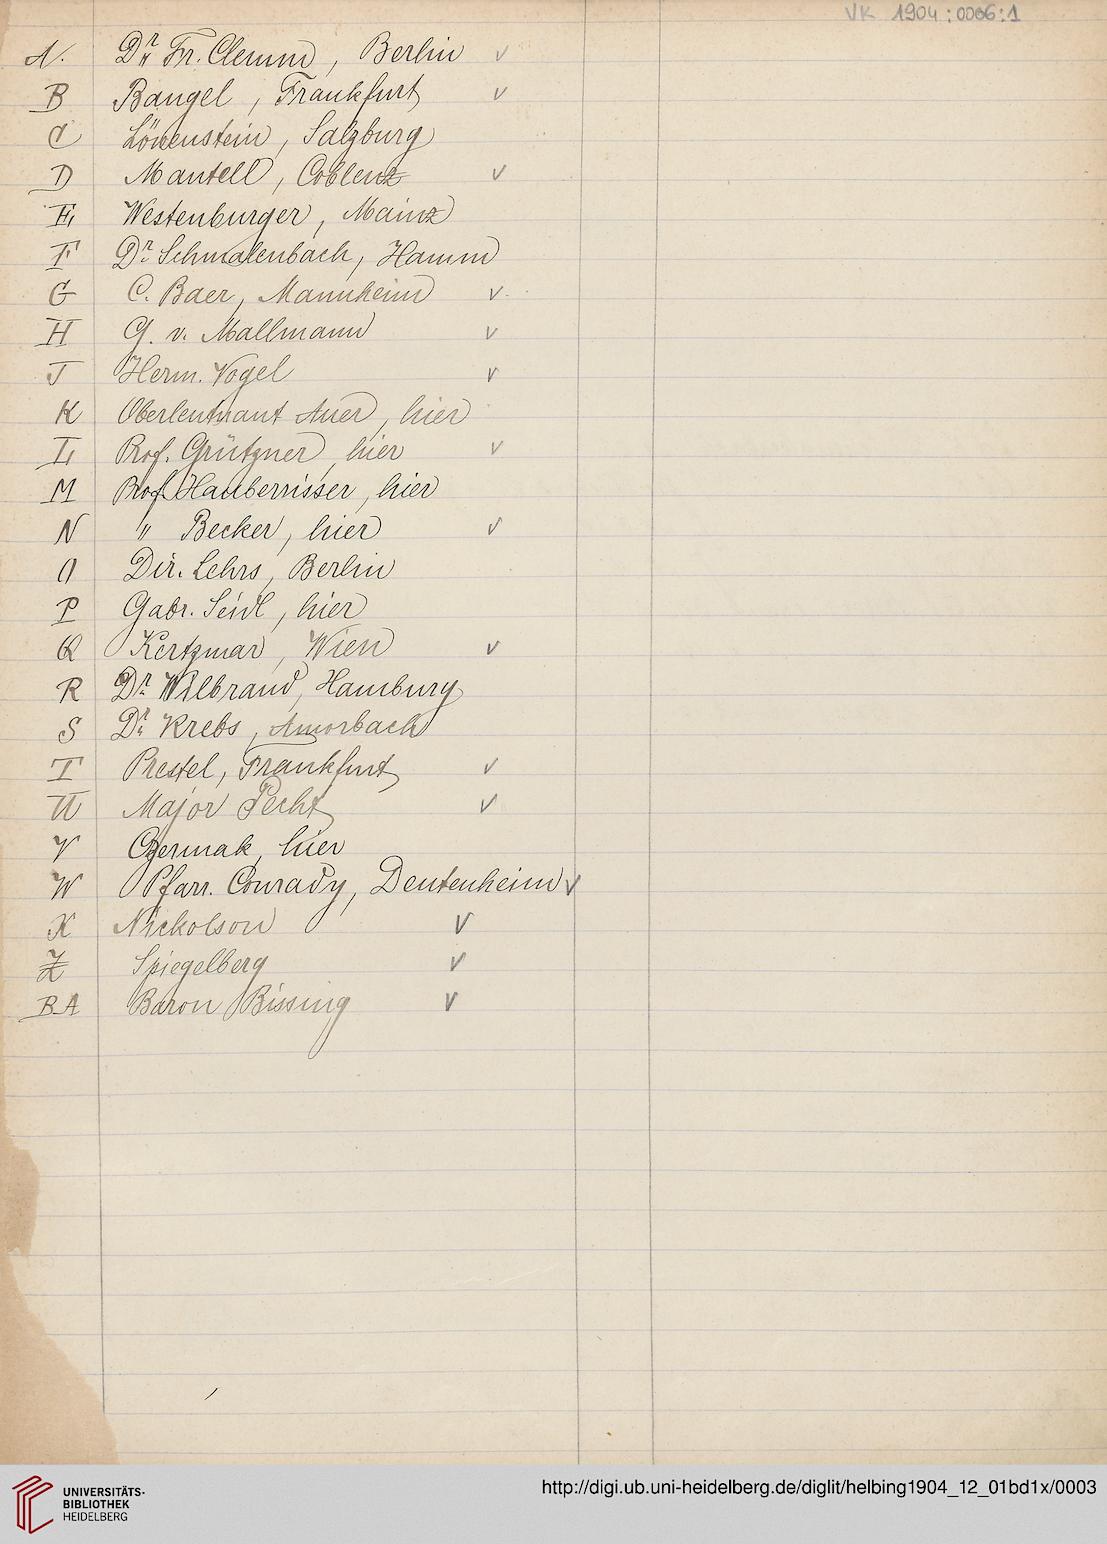 VK 1904:0006:1
A. Dr. Fr. Clemm, Berlin ✓
B Bangel, Frankfurt ✓
C Löwenstein, Salzburg
D Mantell, Coblenz ✓
E Westenburger, Mainz
F Dr. Schmalenbach, Hamm
G C. Baer, Mannheim ✓
H G. v. Mallmann ✓
J Herm. Vogel ✓
K Oberleutnant Auer, hier
L Prof. Grützner, hier ✓
M Prof. Hauberrisser, hier
N " Becker, hier ✓
O Dir. Lehrs, Berlin
P Gabr. Seidl, hier
Q Kertzmar, Wien ✓
R Dr. Wilbrand, Hamburg
S Dr. Krebs, Amorbach
T Prestel, Frankfurt ✓
U Major Pecht ✓
V Czermak, hier
W Pfarr. Conrady, Deutenheim ✓
X Nickolson ✓
Z Spiegelberg ✓
BA Baron Bissing ✓
UNIVERSITÄTS-
BIBLIOTHEK
HEIDELBERG
http://digi.ub.uni-heidelberg.de/diglit/helbing1904_12_01bd1x/0003